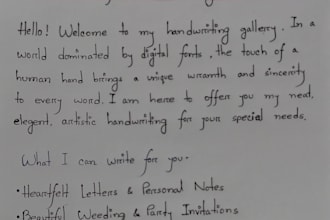 Hello! Welcome to my handwriting gallery. In a
world dominated by digital fonts, the touch of a
human hand brings a unique wramth and sincerity
to every word. I am here to offer you my neat,
elegent, artistic handwriting for your special needs.
What I can write for you.
• Heartfelt Letters & Personal Notes
• Beautiful Weeding & Party Invitations